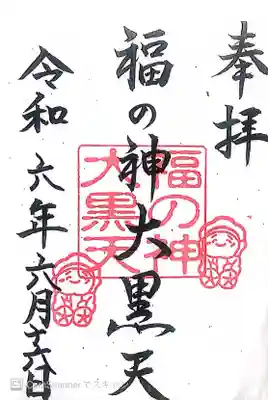 奉拝
福の神大黒天
令和六年六月十六日
福の神
大黒天
CamScannerでスキャン